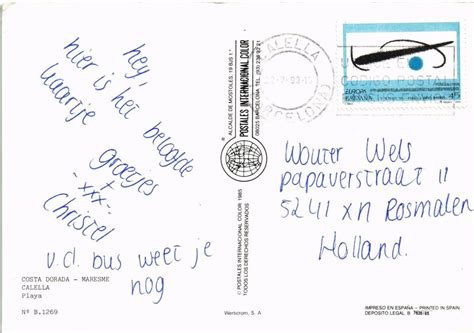 hey,
hier is het beloofde
kaartje
groetjes
-xxx-
Christel
v.d. bus weet je
nog
COSTA DORADA - MARESME
CALELLA
Playa
Nº B.1269
ALCALDE DE MOSTOLES, 19 BJS 1.ª
POSTALES INTERNACIONAL COLOR
© POSTALES INTERNACIONAL COLOR 1985
TODOS LOS DERECHOS RESERVADOS
Werlicrom, S. A
CALELLA
BARCELONA
CODIGO POSTAL
EUROPA
ESPAÑA
45
Wouter Wels
papaverstraat 11
5241 xn Rosmalen
Holland.
IMPRESO EN ESPAÑA - PRINTED IN SPAIN
DEPOSITO LEGAL B